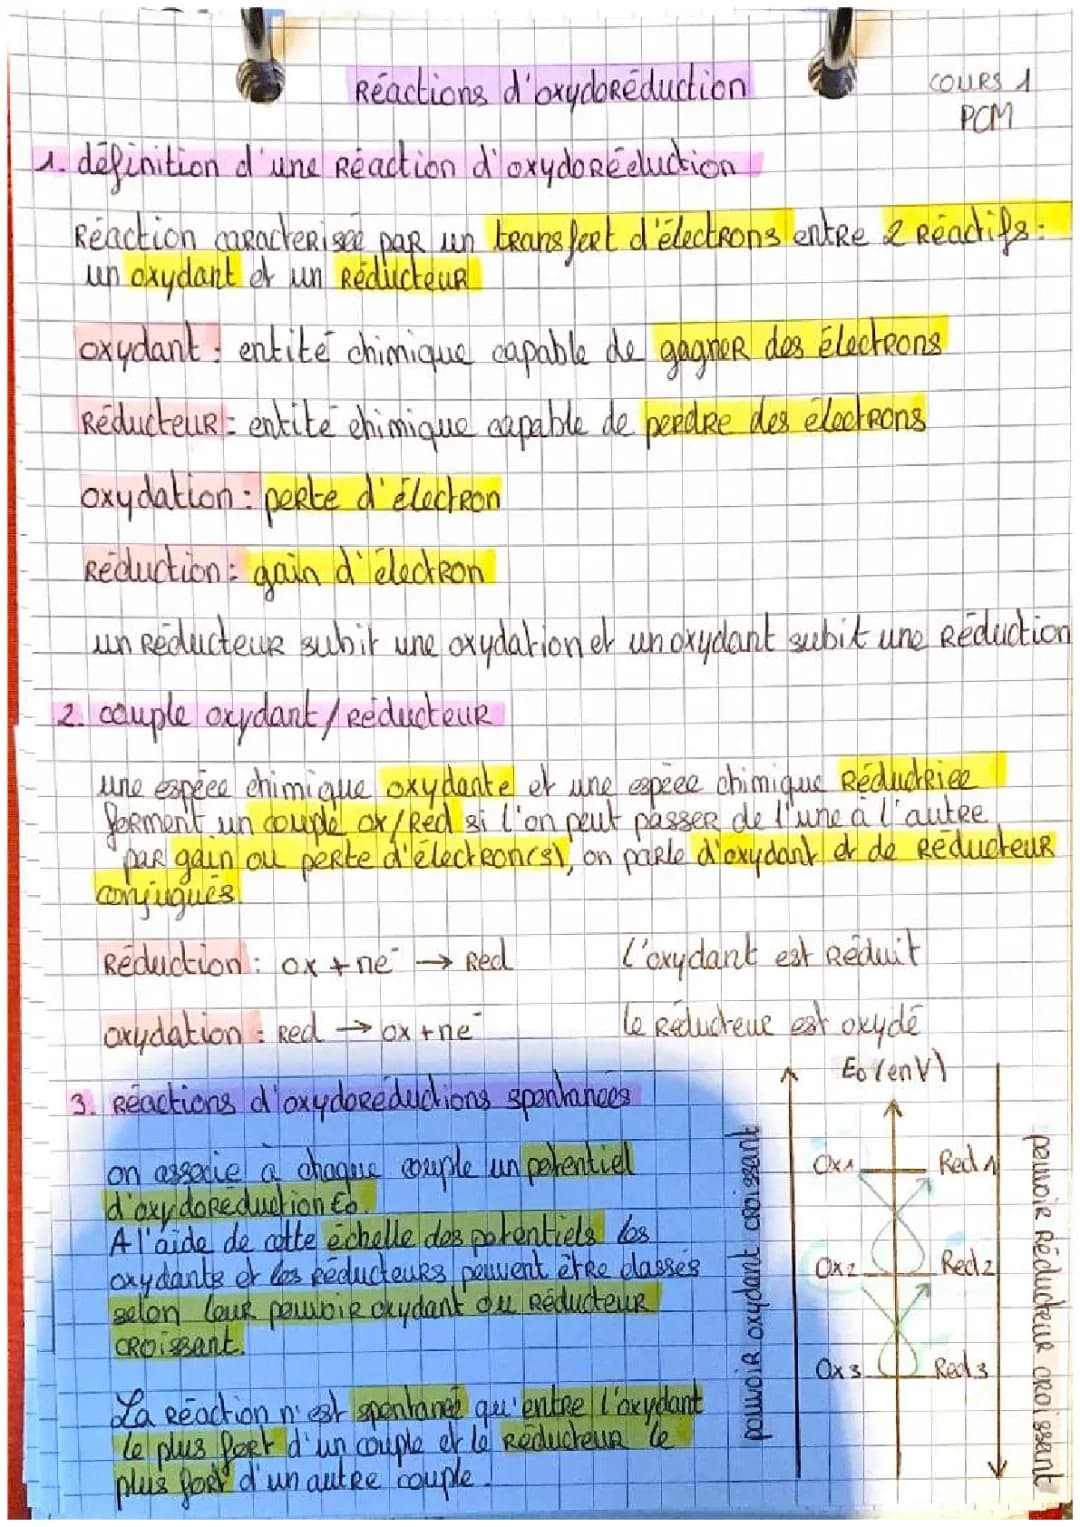 Réactions d'oxydoréduction
COURS 1
PCM
1. définition d'une Réaction d'oxydoréduction
Réaction caractérisée par un transfert d'électrons entre 2 Réactifs :
un oxydant et un Réducteur
oxydant : entité chimique capable de gagner des électrons
Réducteur : entité chimique capable de perdre des électrons
oxydation : perte d'électron
Réduction : gain d'électron
un Réducteur subit une oxydation et un oxydant subit une Réduction
2. couple oxydant/Réducteur
une espèce chimique oxydante et une espèce chimique Réductrice
forment un couple ox/Red si l'on peut passer de l'une à l'autre
par gain ou perte d'électron(s), on parle d'oxydant et de Réducteur
conjugués.
Réduction : ox + ne⁻ → Red
L'oxydant est Réduit
oxydation : Red → ox + ne⁻
le Réducteur est oxydé
3. Réactions d'oxydoréductions spontanées
on associe à chaque couple un potentiel
d'oxydoréduction E0.
A l'aide de cette échelle des potentiels les
oxydants et les Réducteurs peuvent être classés
selon leur pouvoir oxydant ou Réducteur
CROissant.
La Réaction n'est spontanée qu'entre l'oxydant
le plus fort d'un couple et le Réducteur le
plus fort d'un autre couple.
pouvoir oxydant croissant
E0 (en V)
Ox1 Red1
Ox2 Red2
Ox3 Red3
pouvoir Réducteur croissant